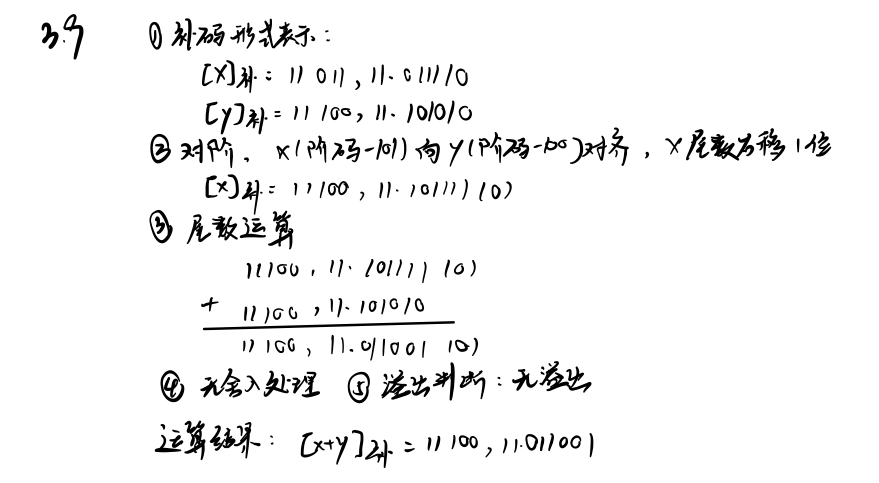 3.9 ① 补码形式表示:
[X]补 = 11 011, 11.011110
[y]补 = 11 100, 11.101010
② 对阶, x(阶码-101)向y(阶码-100)对齐, X尾数右移1位
[x]补 = 11100, 11.101111(0)
③ 尾数运算
11100, 11.101111(0)
+ 11100, 11.101010
11100, 11.011001(0)
④ 无舍入处理 ⑤ 溢出判断: 无溢出
运算结果: [x+y]补 = 11 100, 11.011001